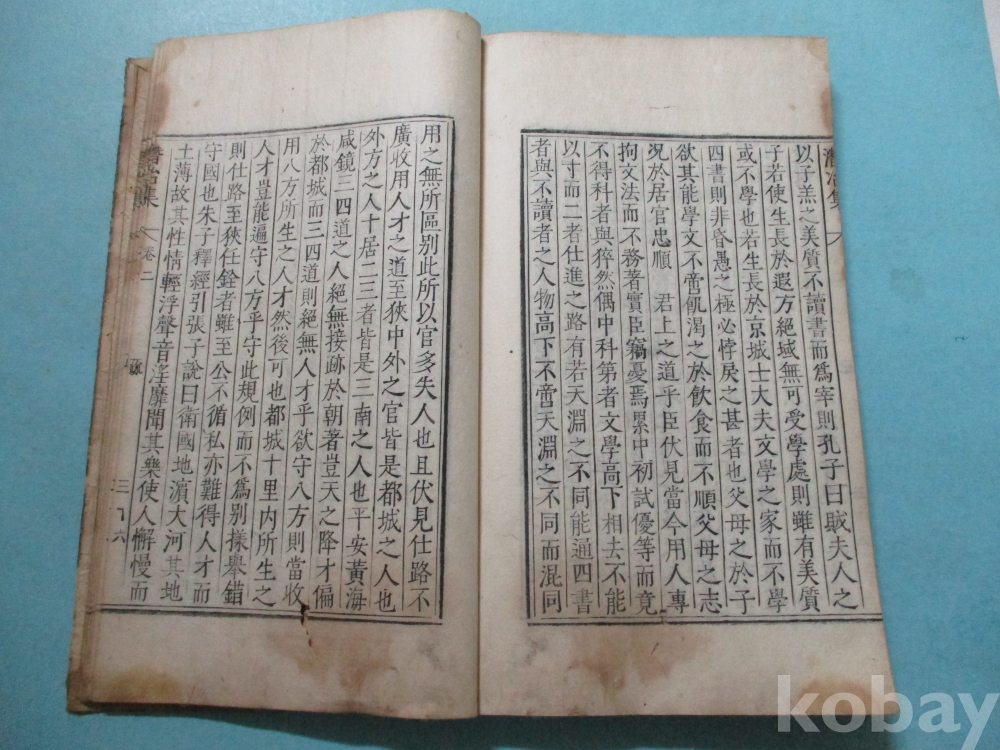 以子羔之美質不讀書而爲宰則孔子曰賊夫人之
子若使生長於遐方絶域無可受學處則雖有美質
或不學也若生長於京城士大夫文學之家而不學
四書則非昏愚之極必悖戾之甚者也父母之於子
欲其能學文不啻飢渴之於飮食而不順父母之志
况於居官忠順　君上之道乎臣伏見當今用人專
拘文法而不務著實臣竊憂焉累中初試優等而竟
不得科者與猝然偶中科第者文學高下相去不能
以寸而二者仕進之路有若天淵之不同能通四書
者與不讀者之人物高下不啻天淵之不同而混同
用之無所區別此所以官多失人也且伏見仕路不
廣收用人才之道至狹中外之官皆是都城之人也
外方之人十居二三者皆是三南之人也平安黃海
咸鏡三四道之人絶無接跡於朝著豈天之降才偏
於都城而三四道則絶無人才乎欲守八方則當收
用八方所生之人才然後可也都城十里內所生之
人才豈能遍守八方乎守此規例而不爲別樣擧錯
則仕路至狹任銓者雖至公不循私亦難得人才而
守國也朱子釋經引張子說曰衛國地濱大河其地
土薄故其性情輕浮聲音淫靡聞其樂使人懈慢而
潛冶集 卷二 疏
kobay